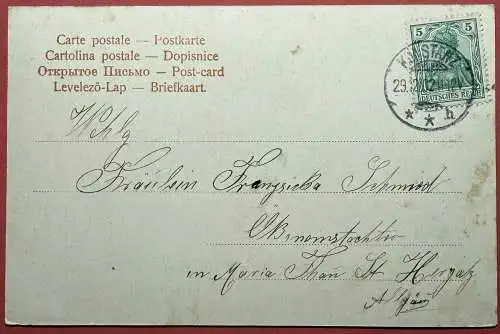 Carte postale — Postkarte
Cartolina postale — Dopisnice
Открытое Письмо — Post-card
Levelező-Lap — Briefkaart.
5 5
DEUTSCHES REICH
KONSTANZ
29.
* * h
Wohlg
Fräulein Franziska Schmid
Ökonomstochter
in Maria Than St Hergatz
Allgäu